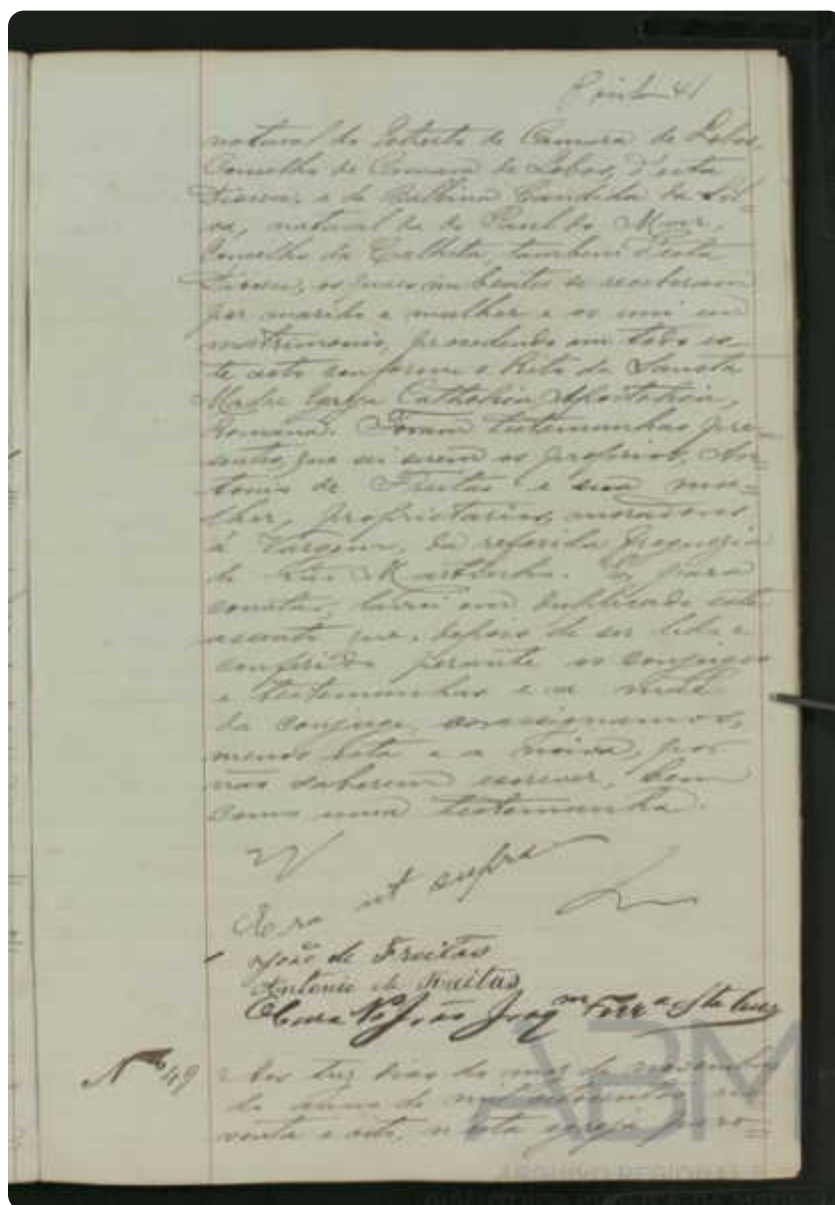 Pinto 41
natural do Estreito de Camara de Lobos,
Concelho de Camara de Lobos, d'esta
Diocese, e de Balbina Candida da Sil-
va, natural da do Paul do Mar,
Concelho da Calheta, tambem d'esta
Diocese, os quaes nubentes se receberam
por marido e mulher e os uni em
matrimonio, procedendo em todo es-
te acto conforme o Rito da Sancta
Madre Egreja Catholica Apostolica,
Romana. Foram testemunhas pre-
sentes, que sei serem os proprios, An-
tonio de Freitas e sua mu=
lher, proprietarios, moradores
á Vargem, da referida freguezia
de São Martinho. E, para
constar, lavrei em duplicado este
assento que, depois de ser lido e
conferido perante os conjuges
e testemunhas e a mãe
da conjuge, assignamos,
menos esta e a noiva, por
não saberem escrever, bem
como uma testemunha.
Era ut supra
João de Freitas
Antonio de Freitas
O Cura João Joaqm Ferra Sta Cruz
Nº 49
Aos tres dias do mez de novembro
do anno de mil oitocentos no-
venta e oito, n'esta egreja paro=
ABM
ARQUIVO REGIONAL E